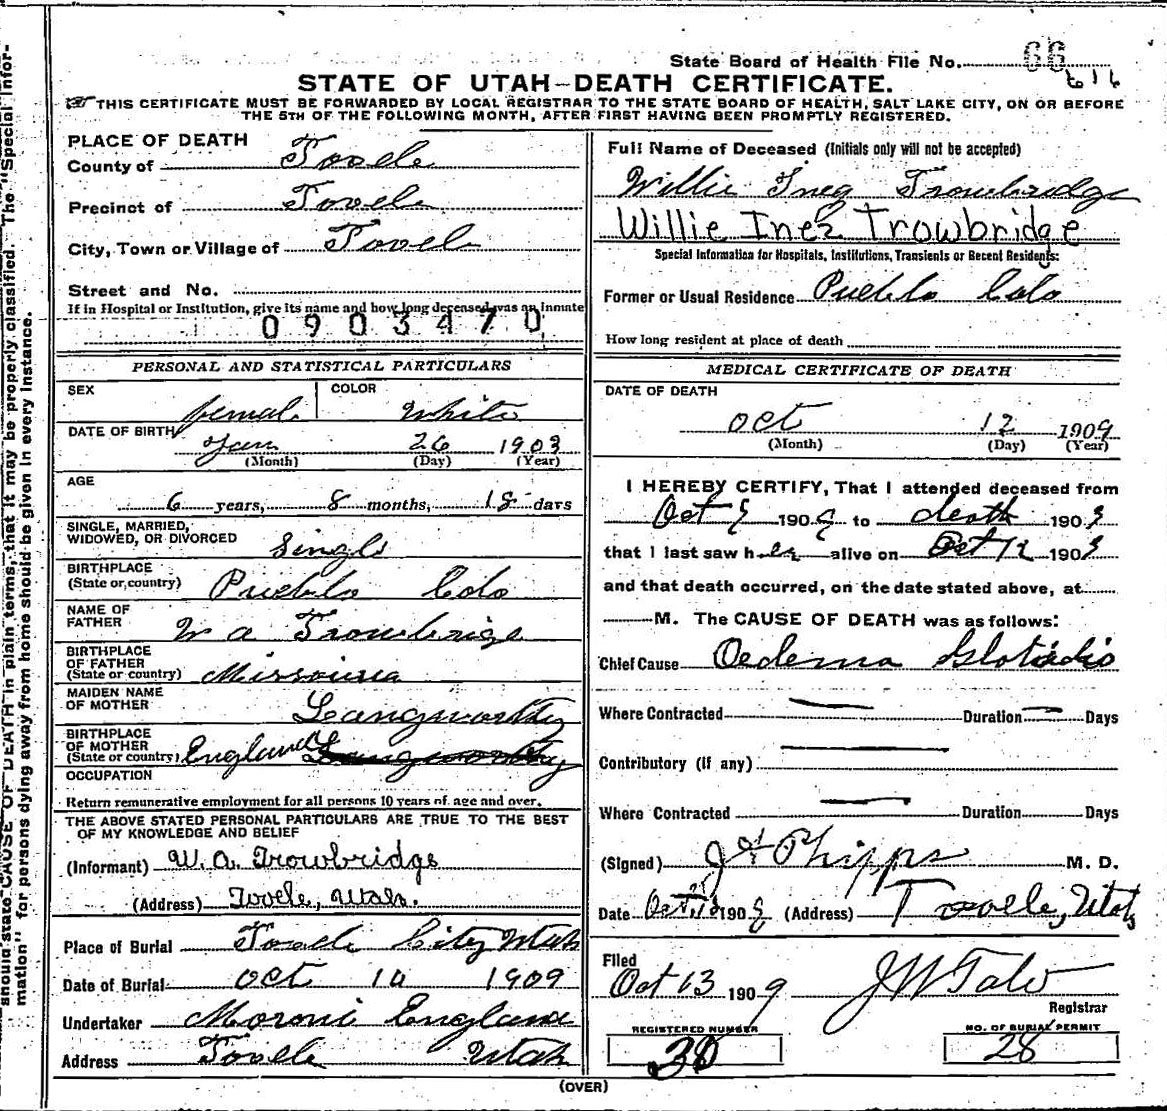 State Board of Health File No. 66
616
STATE OF UTAH—DEATH CERTIFICATE.
THIS CERTIFICATE MUST BE FORWARDED BY LOCAL REGISTRAR TO THE STATE BOARD OF HEALTH, SALT LAKE CITY, ON OR BEFORE
THE 5TH OF THE FOLLOWING MONTH, AFTER FIRST HAVING BEEN PROMPTLY REGISTERED.
PLACE OF DEATH
County of Tooele
Precinct of Tooele
City, Town or Village of Tooele
Street and No.
If in Hospital or Institution, give its name and how long deceased was an inmate
0903470
PERSONAL AND STATISTICAL PARTICULARS
SEX female COLOR White
DATE OF BIRTH Jan 26 1903
(Month) (Day) (Year)
AGE
6 years, 8 months, 18 days
SINGLE, MARRIED,
WIDOWED, OR DIVORCED Single
BIRTHPLACE
(State or country) Pueblo Colo
NAME OF
FATHER W a Trowbrige
BIRTHPLACE
OF FATHER
(State or country) Missouria
MAIDEN NAME
OF MOTHER Langworthy
BIRTHPLACE
OF MOTHER
(State or country) England
OCCUPATION
Return remunerative employment for all persons 10 years of age and over.
THE ABOVE STATED PERSONAL PARTICULARS ARE TRUE TO THE BEST
OF MY KNOWLEDGE AND BELIEF
(Informant) W. A. Trowbridge
(Address) Tooele, Utah.
Place of Burial Tooele City Utah
Date of Burial Oct 14 1909
Undertaker Moroni England
Address Tooele Utah
Full Name of Deceased (Initials only will not be accepted)
Willie Inez Trowbridge
Willie Inez Trowbridge
Special Information for Hospitals, Institutions, Transients or Recent Residents:
Former or Usual Residence Pueblo Colo
How long resident at place of death
MEDICAL CERTIFICATE OF DEATH
DATE OF DEATH
Oct 12 1909
(Month) (Day) (Year)
I HEREBY CERTIFY, That I attended deceased from
Oct 9 1909 to death 1909
that I last saw her alive on Oct 12 1909
and that death occurred, on the date stated above, at
M. The CAUSE OF DEATH was as follows:
Chief Cause Oedema
Where Contracted Duration Days
Contributory (if any)
Where Contracted Duration Days
(Signed) Phipps M. D.
Date Oct 1909 (Address) Tooele, Utah
Filed
Oct 13 1909 J W Tate
Registrar
REGISTERED NUMBER
30
NO. OF BURIAL PERMIT
28
(OVER)
should state CAUSE OF DEATH in plain terms, that it may be properly classified. The "Special Infor-
mation" for persons dying away from home should be given in every instance.